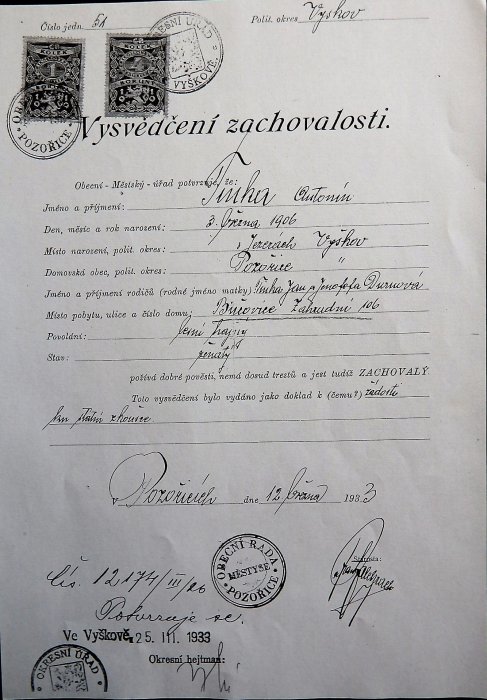 Číslo jedn. 51 Polit. okres Vyškov
KOLEK 1 KORUNA
KOLEK 4 KORUNY
OKRESNÍ ÚŘAD VYŠKOVĚ
POZOŘICE
Vysvědčení zachovalosti.
Obecní - Městský - úřad potvrzuje, že:
Jméno a příjmení: Antonín
Den, měsíc a rok narození: 3. března 1906
Místo narození, polit. okres: v Jezerách Vyškov
Domovská obec, polit. okres: Pozořice "
Jméno a příjmení rodičů (rodné jméno matky) Jan a Josefa Durnová
Místo pobytu, ulice a číslo domu: Bučovice Zahradní 106
Povolání: lesní hajný
Stav: ženatý
požívá dobré pověsti, nemá dosud trestů a jest tudíž ZACHOVALÝ
Toto vysvědčení bylo vydáno jako doklad k (čemu?) žádosti
ku státní zkoušce.
v Pozořicích dne 12 března 1933
OBECNÍ RADA MĚSTYSE POZOŘICE
Starosta:
Čís. 12174/III/26
Potvrzuje se.
Ve Vyškově, 25. III. 1933
Okresní hejtman:
OKRESNÍ ÚŘAD